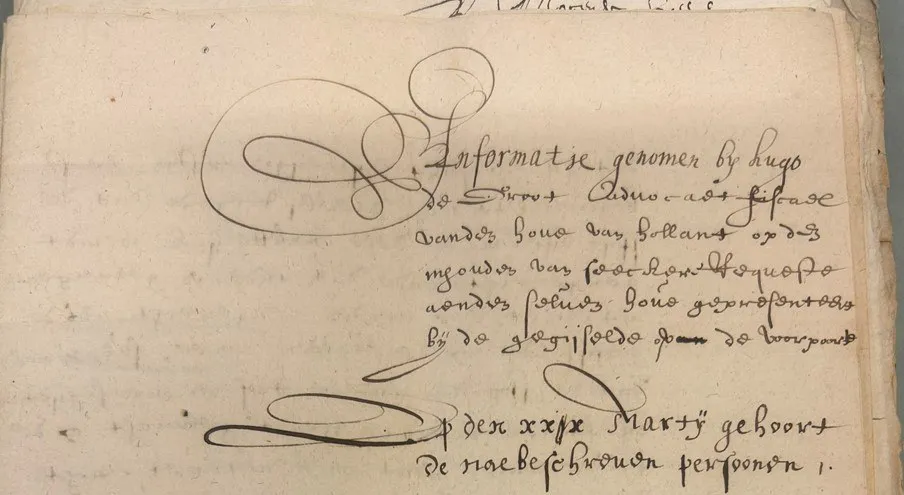 Informatie genomen by hugo
de Groot Advocaet fiscael
vanden hove van hollant op den
inhouden van seeckere Requeste
aenden selven hove gepresenteert
bÿ de gegijselde op de voorpoort
Op den xxix Martÿ gehoort
de naebeschreven persoonen